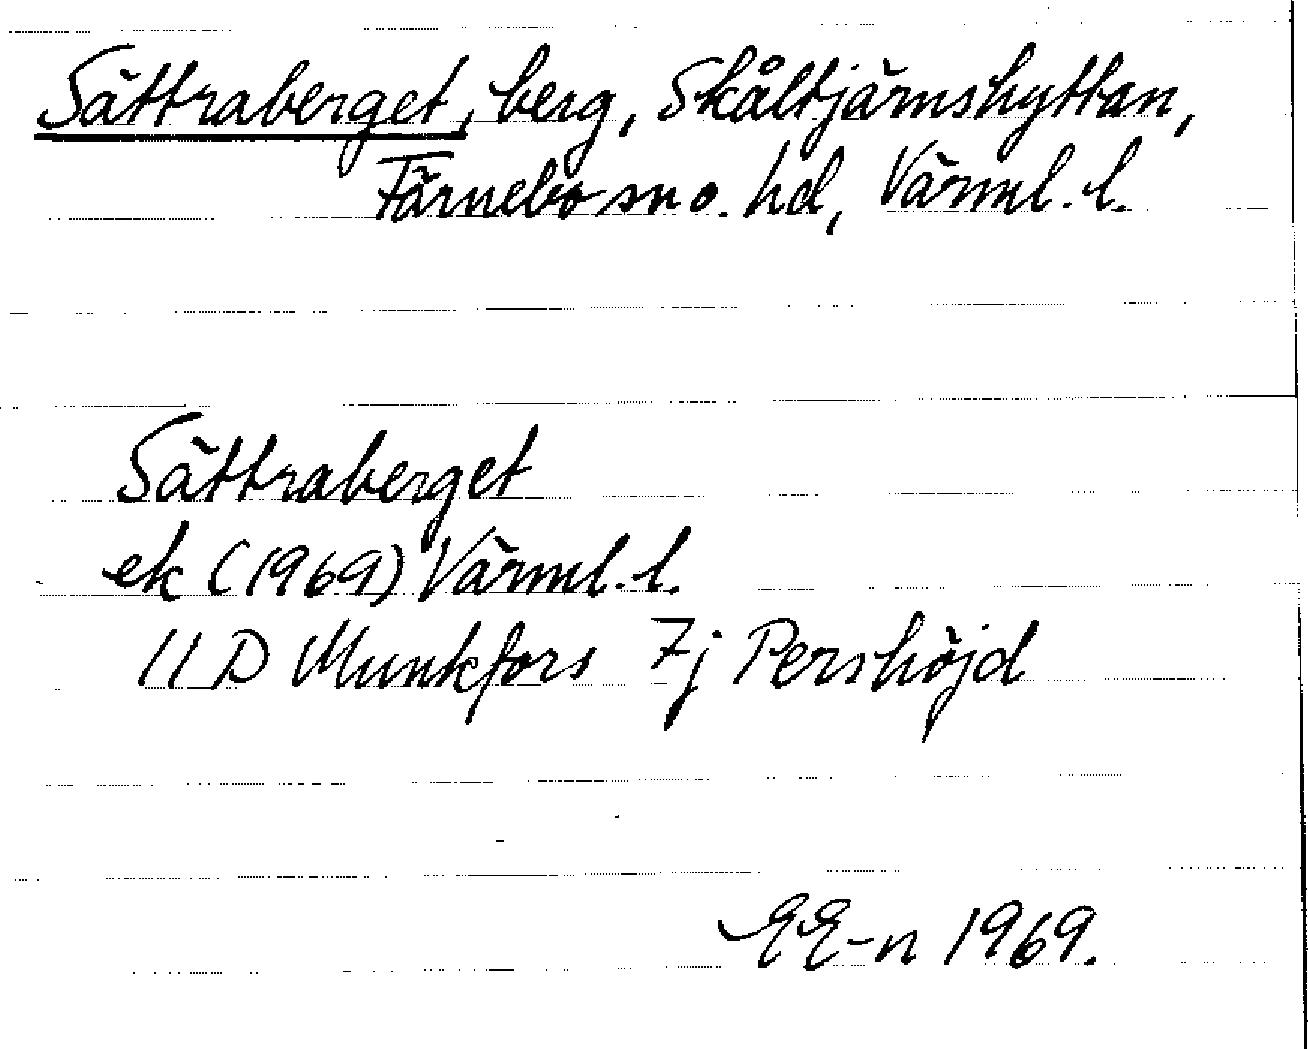 Sättraberget, berg, Skåltjärnshyttan,
Färnebo sn o. hd, Värml. l.
Sättraberget
ek (1969) Värml. l.
11 D Munkfors 7j Pershöjd
EE-n 1969.